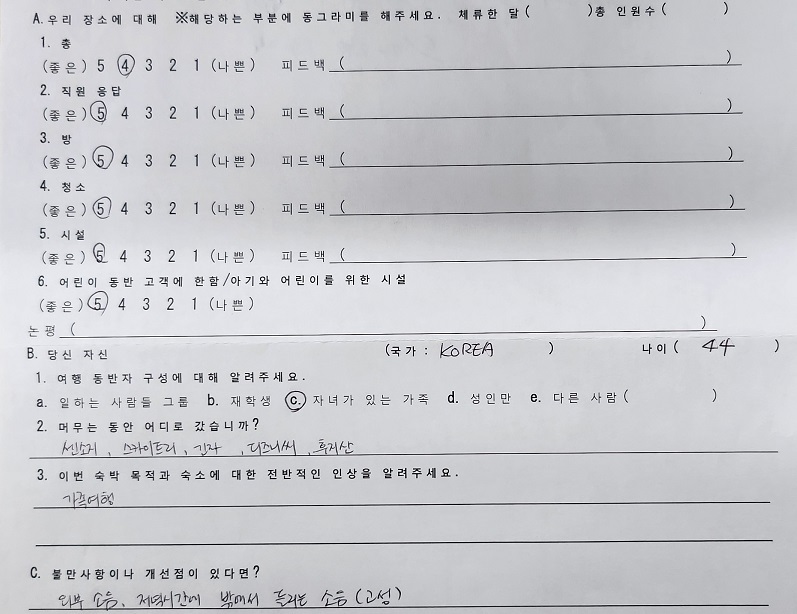 A.우리 장소에 대해 ※해당하는 부분에 동그라미를 해주세요. 체류한 달( )총 인원수( )
1. 총
(좋은) 5 4 3 2 1 (나쁜) 피드백 ( )
2. 직원 응답
(좋은) 5 4 3 2 1 (나쁜) 피드백 ( )
3. 방
(좋은) 5 4 3 2 1 (나쁜) 피드백 ( )
4. 청소
(좋은) 5 4 3 2 1 (나쁜) 피드백 ( )
5. 시설
(좋은) 5 4 3 2 1 (나쁜) 피드백 ( )
6. 어린이 동반 고객에 한함/아기와 어린이를 위한 시설
(좋은) 5 4 3 2 1 (나쁜)
논평 ( )
B. 당신 자신 (국가 : KOREA ) 나이( 44 )
1. 여행 동반자 구성에 대해 알려주세요.
a. 일하는 사람들 그룹 b. 재학생 c. 자녀가 있는 가족 d. 성인만 e. 다른 사람( )
2. 머무는 동안 어디로 갔습니까?
센소지, 스카이트리, 긴자, 디즈니씨, 후지산
3. 이번 숙박 목적과 숙소에 대한 전반적인 인상을 알려주세요.
가족여행
C. 불만사항이나 개선점이 있다면?
외부 소음, 저녁시간에 밖에서 들리는 소음 (고성)